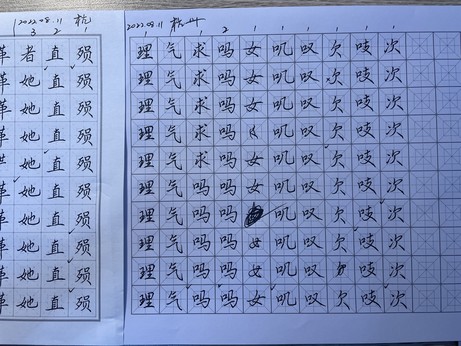 2022.08.11 杭
3 2 1
革 者 直 殒
革 她 直 殒
革 她 直 殒
革 她 直 殒
她 直 殒
革 她 直 殒
革 她 直 殒
革 她 直 殒
革 她 直 殒
革 她 直 殒
2022.08.11
理 气 求 吗 女 叽 叹 欠 吱 次
理 气 求 吗 女 叽 叹 次 吱 次
理 气 求 吗 女 叽 叹 欠 吱 次
理 气 求 吗 叽 叹 欠 吱 次
理 气 求 吗 女 叽 叹 欠 吱 次
理 气 吗 吗 女 叽 叹 欠 吱 次
理 气 吗 吗 叽 叹 欠 吱 次
理 气 吗 吗 女 叽 叹 欠 吱 次
理 气 吗 吗 女 叽 叹 吱 次
理 气 吗 吗 女 叽 叹 欠 吱 次